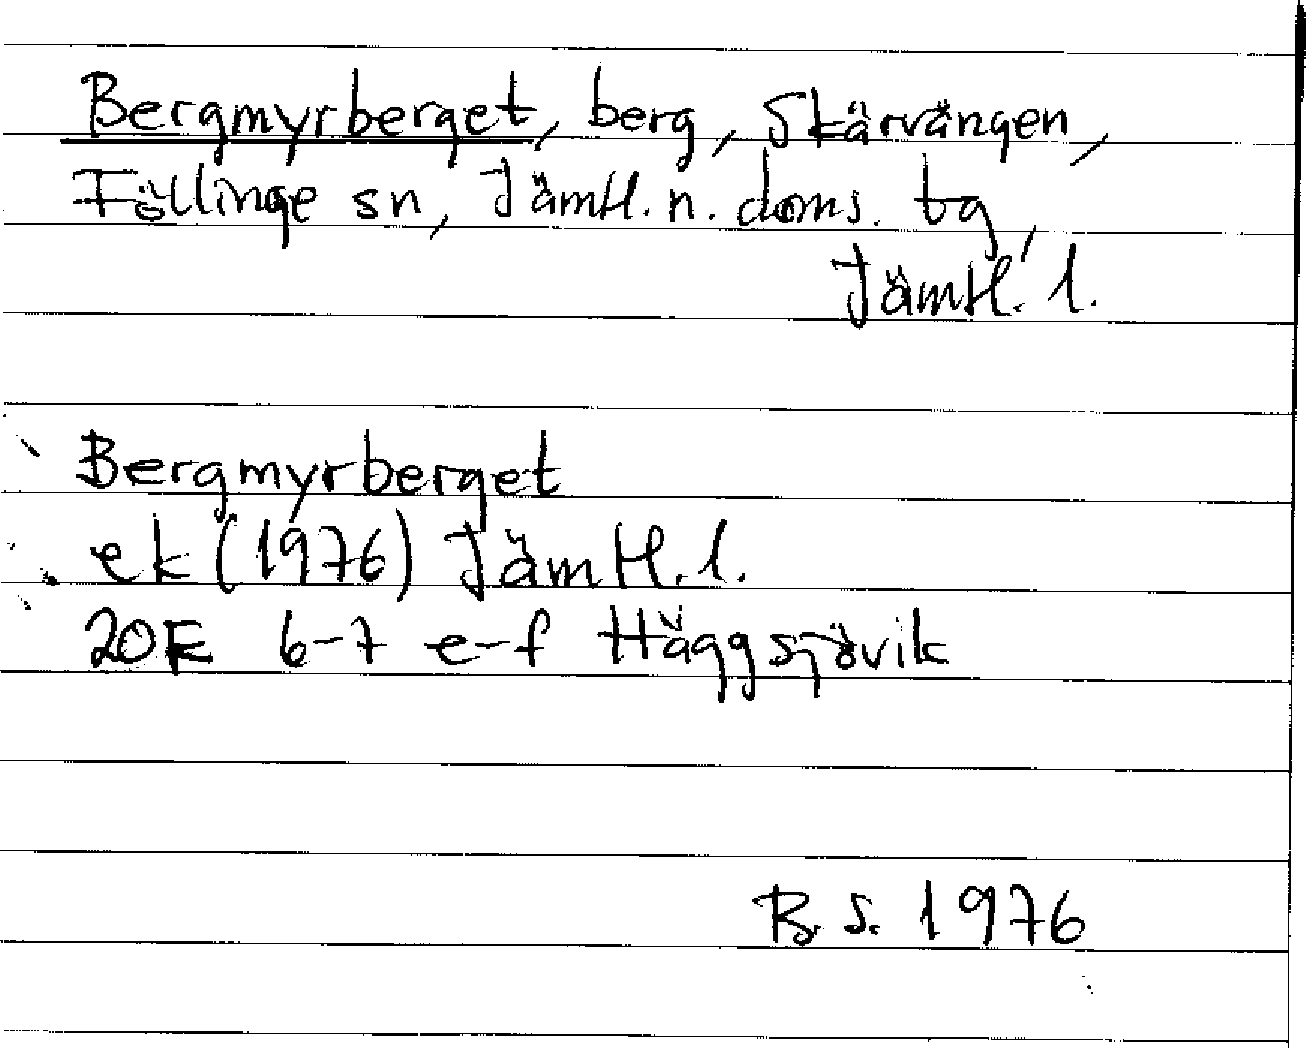 Bergmyrberget, berg, Skärvången,
Föllinge sn, Jämtl. n. doms. tg,
Jämtl. l.
Bergmyrberget
ek (1976) Jämtl. l.
20E 6-7 e-f Häggsjövik
B. S. 1976